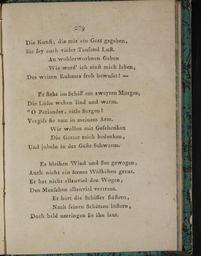 279
Die Kunst, die mir ein Gott gegeben,
Sie sey auch vieler Tausend Lust.
An wohlerworbnen Gaben
Wie werd' ich einst mich laben,
Des weiten Ruhmes froh bewußt! —
Er steht im Schiff am zweyten Morgen,
Die Lüfte wehen lind und warm.
"O Periander, eitle Sorgen!
Vergiß sie nun in meinem Arm.
Wir wollen mit Geschenken
Die Götter reich bedenken,
Und jubeln in der Gäste Schwarm.
Es bleiben Wind und See gewogen,
Auch nicht ein fernes Wölkchen graut.
Er hat nicht allzuviel den Wogen,
Den Menschen allzuviel vertraut.
Er hört die Schiffer flüstern,
Nach seinen Schätzen lüstern,
Doch bald umringen sie ihn laut.